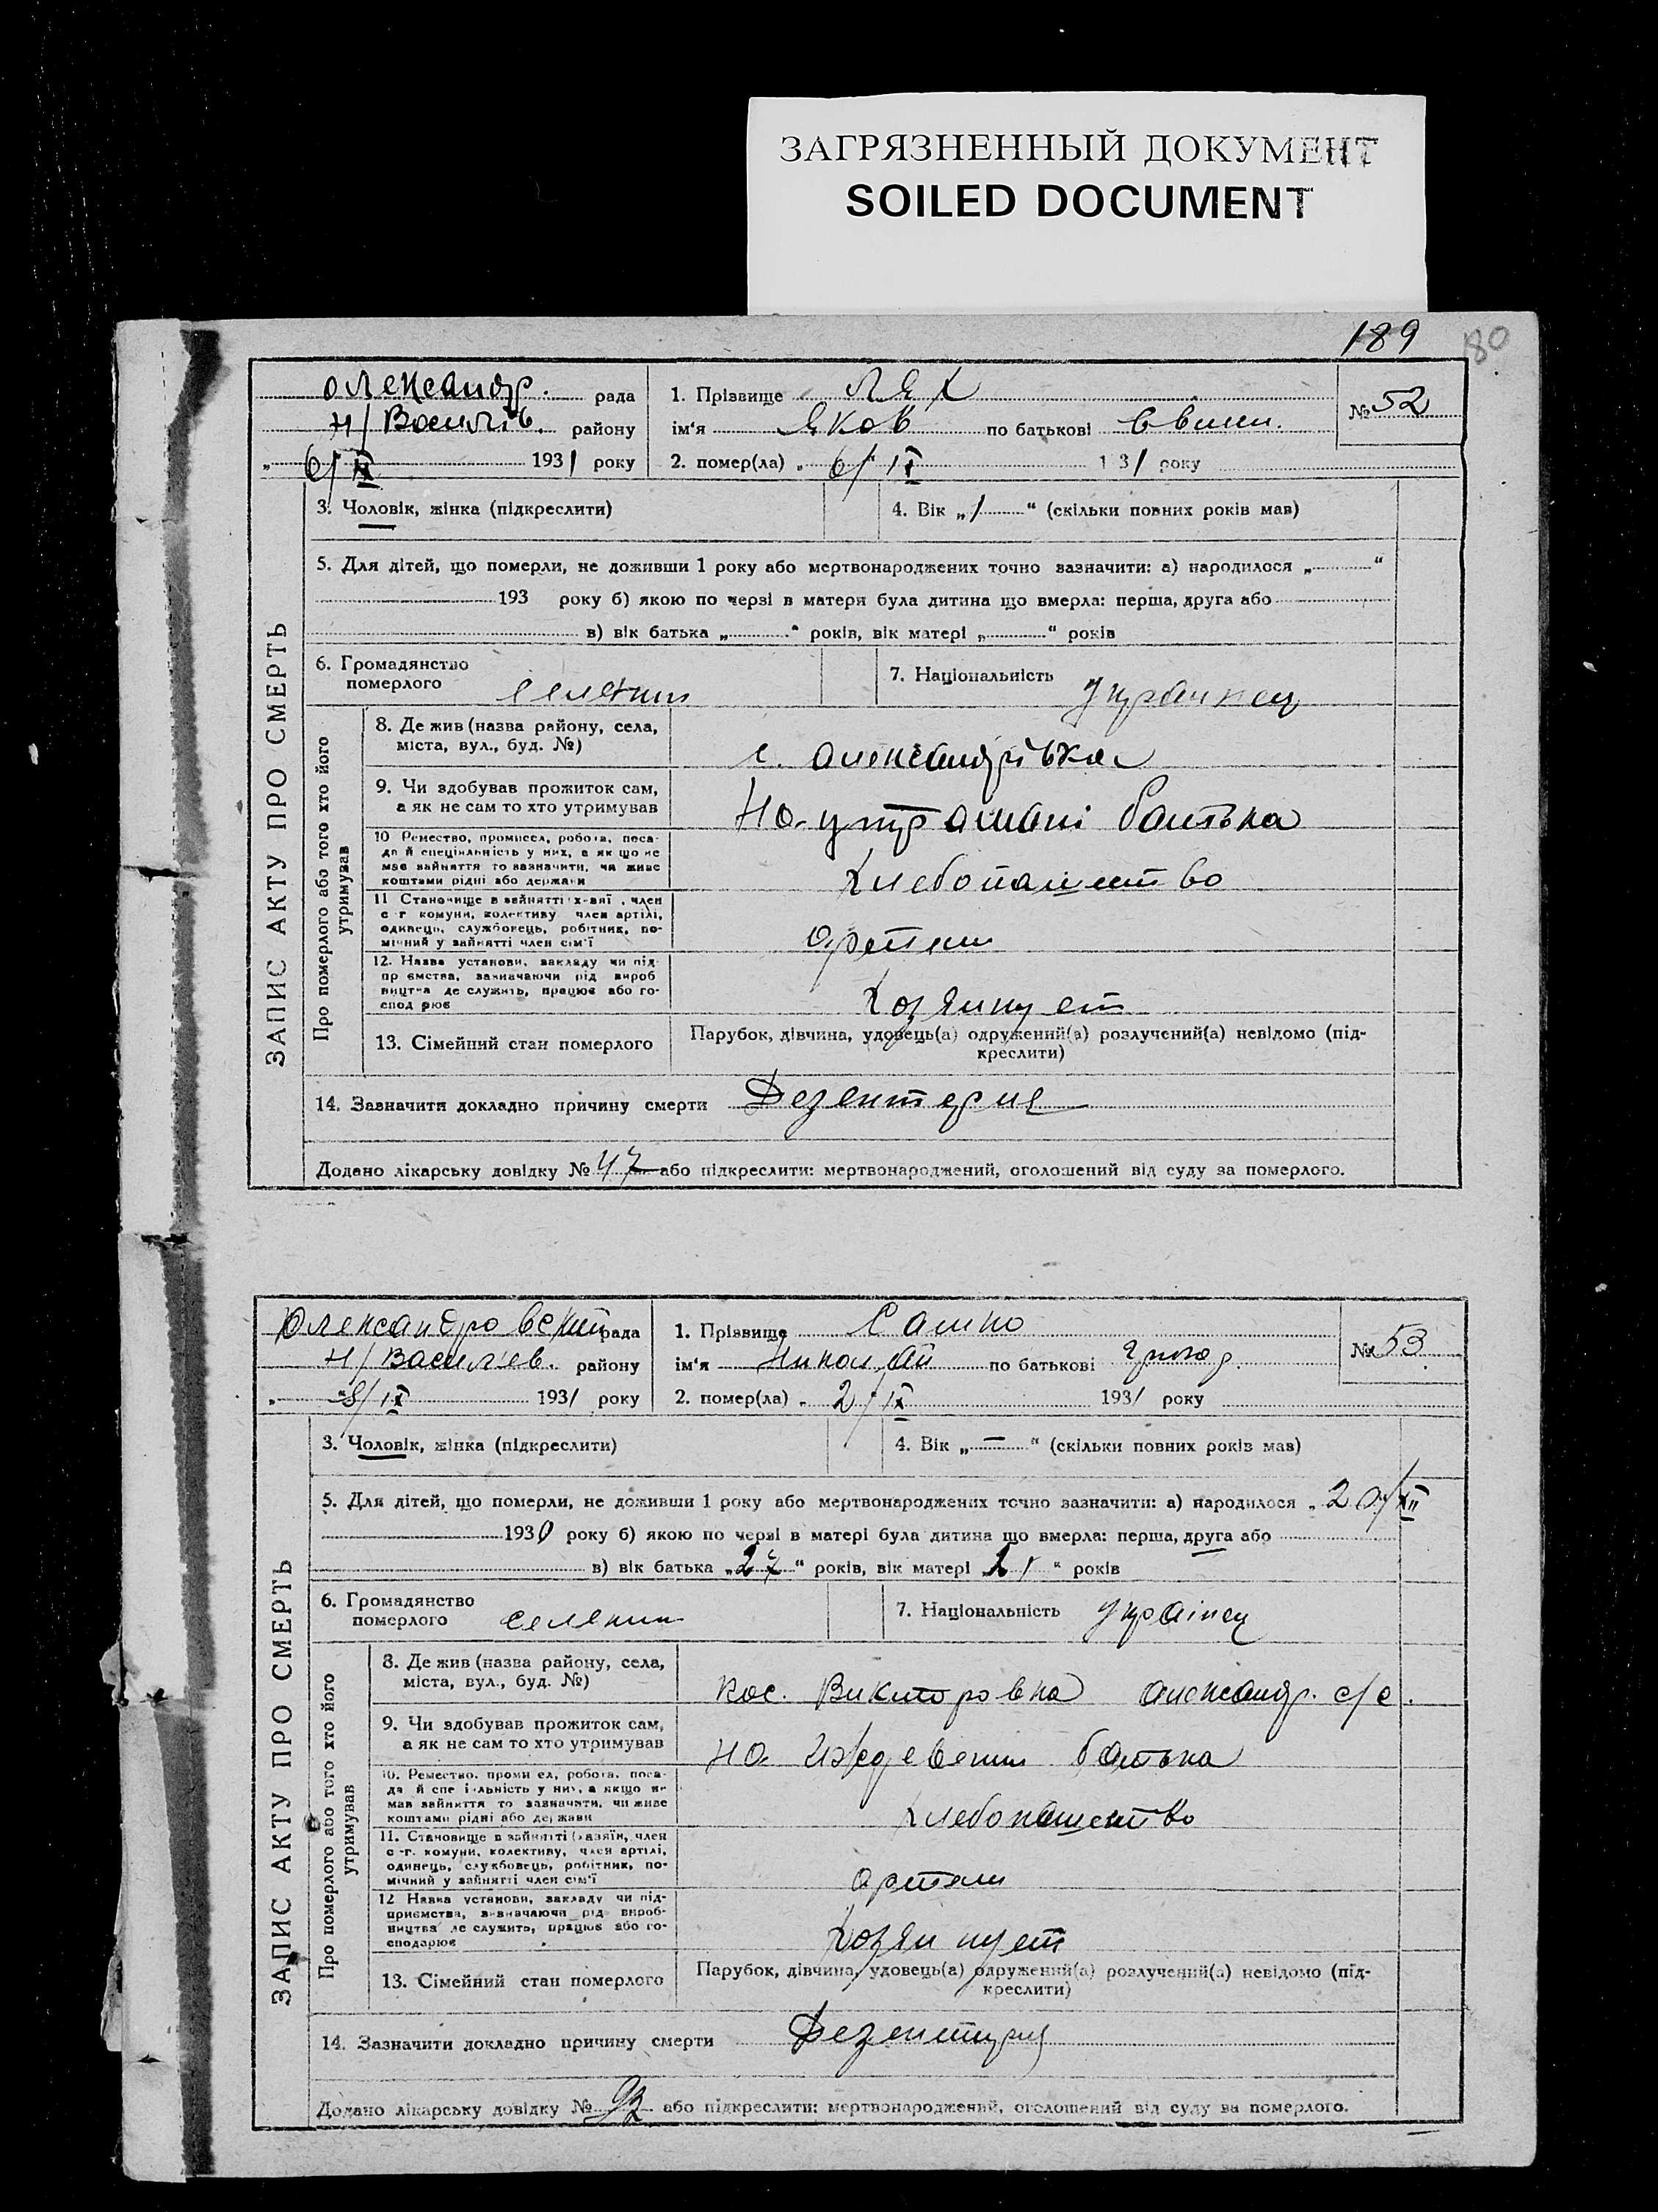 ЗАГРЯЗНЕННЫЙ ДОКУМЕНТ
SOILED DOCUMENT
189
80
Олександр. рада
Н/Василів. району
6/IX 1931 року
1. Прізвище Лях
ім‘я Яков по батькові
2. помер(ла) „ 6/IX 131 року
№ 52
ЗАПИС АКТУ ПРО СМЕРТЬ
3. Чоловік, жінка (підкреслити)
4. Вік „1“ (скільки повних років мав)
5. Для дітей, що померли, не доживши 1 року або мертвонароджених точно зазначити: а) народилося „ “
193 року б) якою по черзі в матери була дитина що вмерла: перша, друга або
в) вік батька „ “ років, вік матері „ “ років
6. Громадянство
померлого селянин
7. Національність Украинец
Про померлого або того хто його
утримував
8. Де жив (назва району, села,
міста, вул., буд. №)
с. Олександрівка
9. Чи здобував прожиток сам,
а як не сам то хто утримував
На утримані батька
10 Ремество, промисел, робота, поса-
да й спеціяльність у них, а як що не
має зайняття то зазначити, чи живе
коштами рідні або держави
Хлебопашество
11 Становище в зайнятті х-зяї , член
с-г комуни, колективу член артілі,
одинець, службовець, робітник, по-
мічний у зайнятті член сім‘ї
Артели
12. Назва установи, закладу чи під-
пр ємства, зазначаючи рід вироб
ництва де служить, працює або го-
спод рює
Хозяинует
13. Сімейний стан померлого
Парубок, дівчина, удовець(а) одружений(а) розлучений(а) невідомо (під-
креслити)
14. Зазначити докладно причину смерти Дезентерия
Додано лікарську довідку № 47 або підкреслити: мертвонароджений, оголошений від суду за померлого.
Олександровский рада
Н/Василʼев. району
„ 8/IX 1931 року
1. Прізвище Сашко
ім‘я Николай по батькові Григор.
2. помер(ла) „ 2/IX 1931 року
№ 53
ЗАПИС АКТУ ПРО СМЕРТЬ
3. Чоловік, жінка (підкреслити)
4. Вік „—“ (скільки повних років мав)
5. Для дітей, що померли, не доживши 1 року або мертвонароджених точно зазначити: а) народилося „20/XII
1930 року б) якою по черзі в матері була дитина що вмерла: перша, друга або
в) вік батька „27“ років, вік матері „21“ років
6. Громадянство
померлого селянин
7. Національність Українец
Про померлого або того хто його
утримував
8. Де жив (назва району, села,
міста, вул., буд. №)
пос. Викторовка Олександр. с/с.
9. Чи здобував прожиток сам,
а як не сам то хто утримував
На иждевении батька
10. Ремество, проми ел, робота, поса-
да й спе і-льність у них, а якщо не
має зайняття то зазначити, чи живе
коштами рідні або держави
Хлебопашество
11. Становище в зайнятті (хазяїн, член
с-г. комуни, колективу, член артілі,
одинець, службовець, робітник, по-
мічний у зайнятті член сім‘ї
Артели
12 Назва установи, закладу чи під-
приємства, зазначаючи рід вироб-
ництва де служить, працює або го-
сподарює
Хозяинует
13. Сімейний стан померлого
Парубок, дівчина, удовець(а) одружений(а) розлучений(а) невідомо (під-
креслити)
14. Зазначити докладно причину смерти Дезентирия
Додано лікарську довідку № або підкреслити: мертвонароджений, оголошений від суду за померлого.